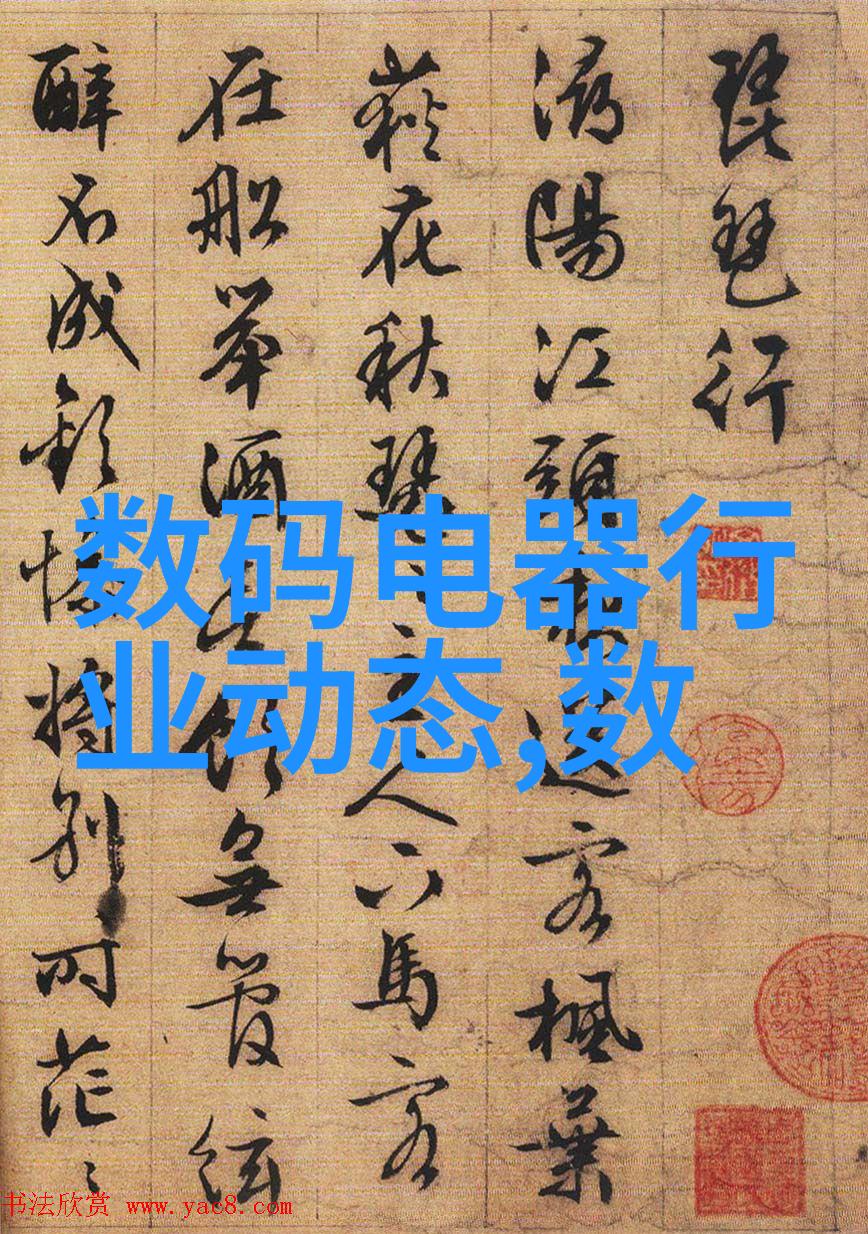 琵琶行
潯陽江頭送客楓葉
荻花秋瑟〻主人下馬客
在船舉酒飲無管絃
醉不成歡慘將別〻時茫〻
数码电器行
业动态,数
书法欣赏 www.yac8.com